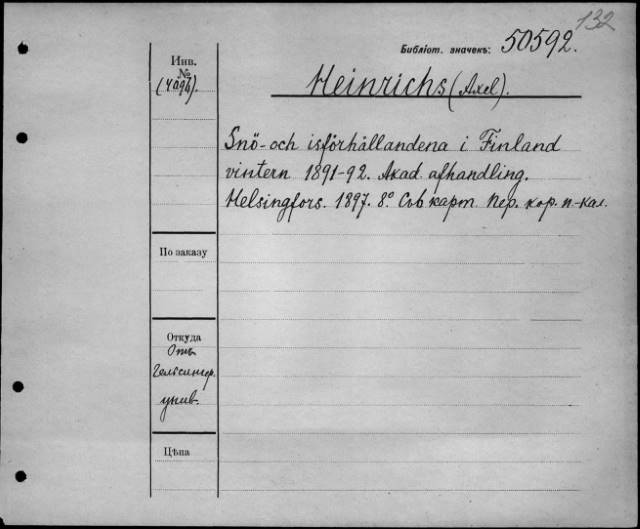 132
Библіот. значекъ: 50592.
Инв.
№
(4094).
Heinrichs (Axel).
Snö- och isförhållandena i Finland
vintern 1891-92. Akad. afhandling.
Helsingfors. 1897. 8° Съ 6 карт. Пер. кор. п-кал.
По заказу
Откуда
Отъ
Гельсингфор.
унив.
Цѣна